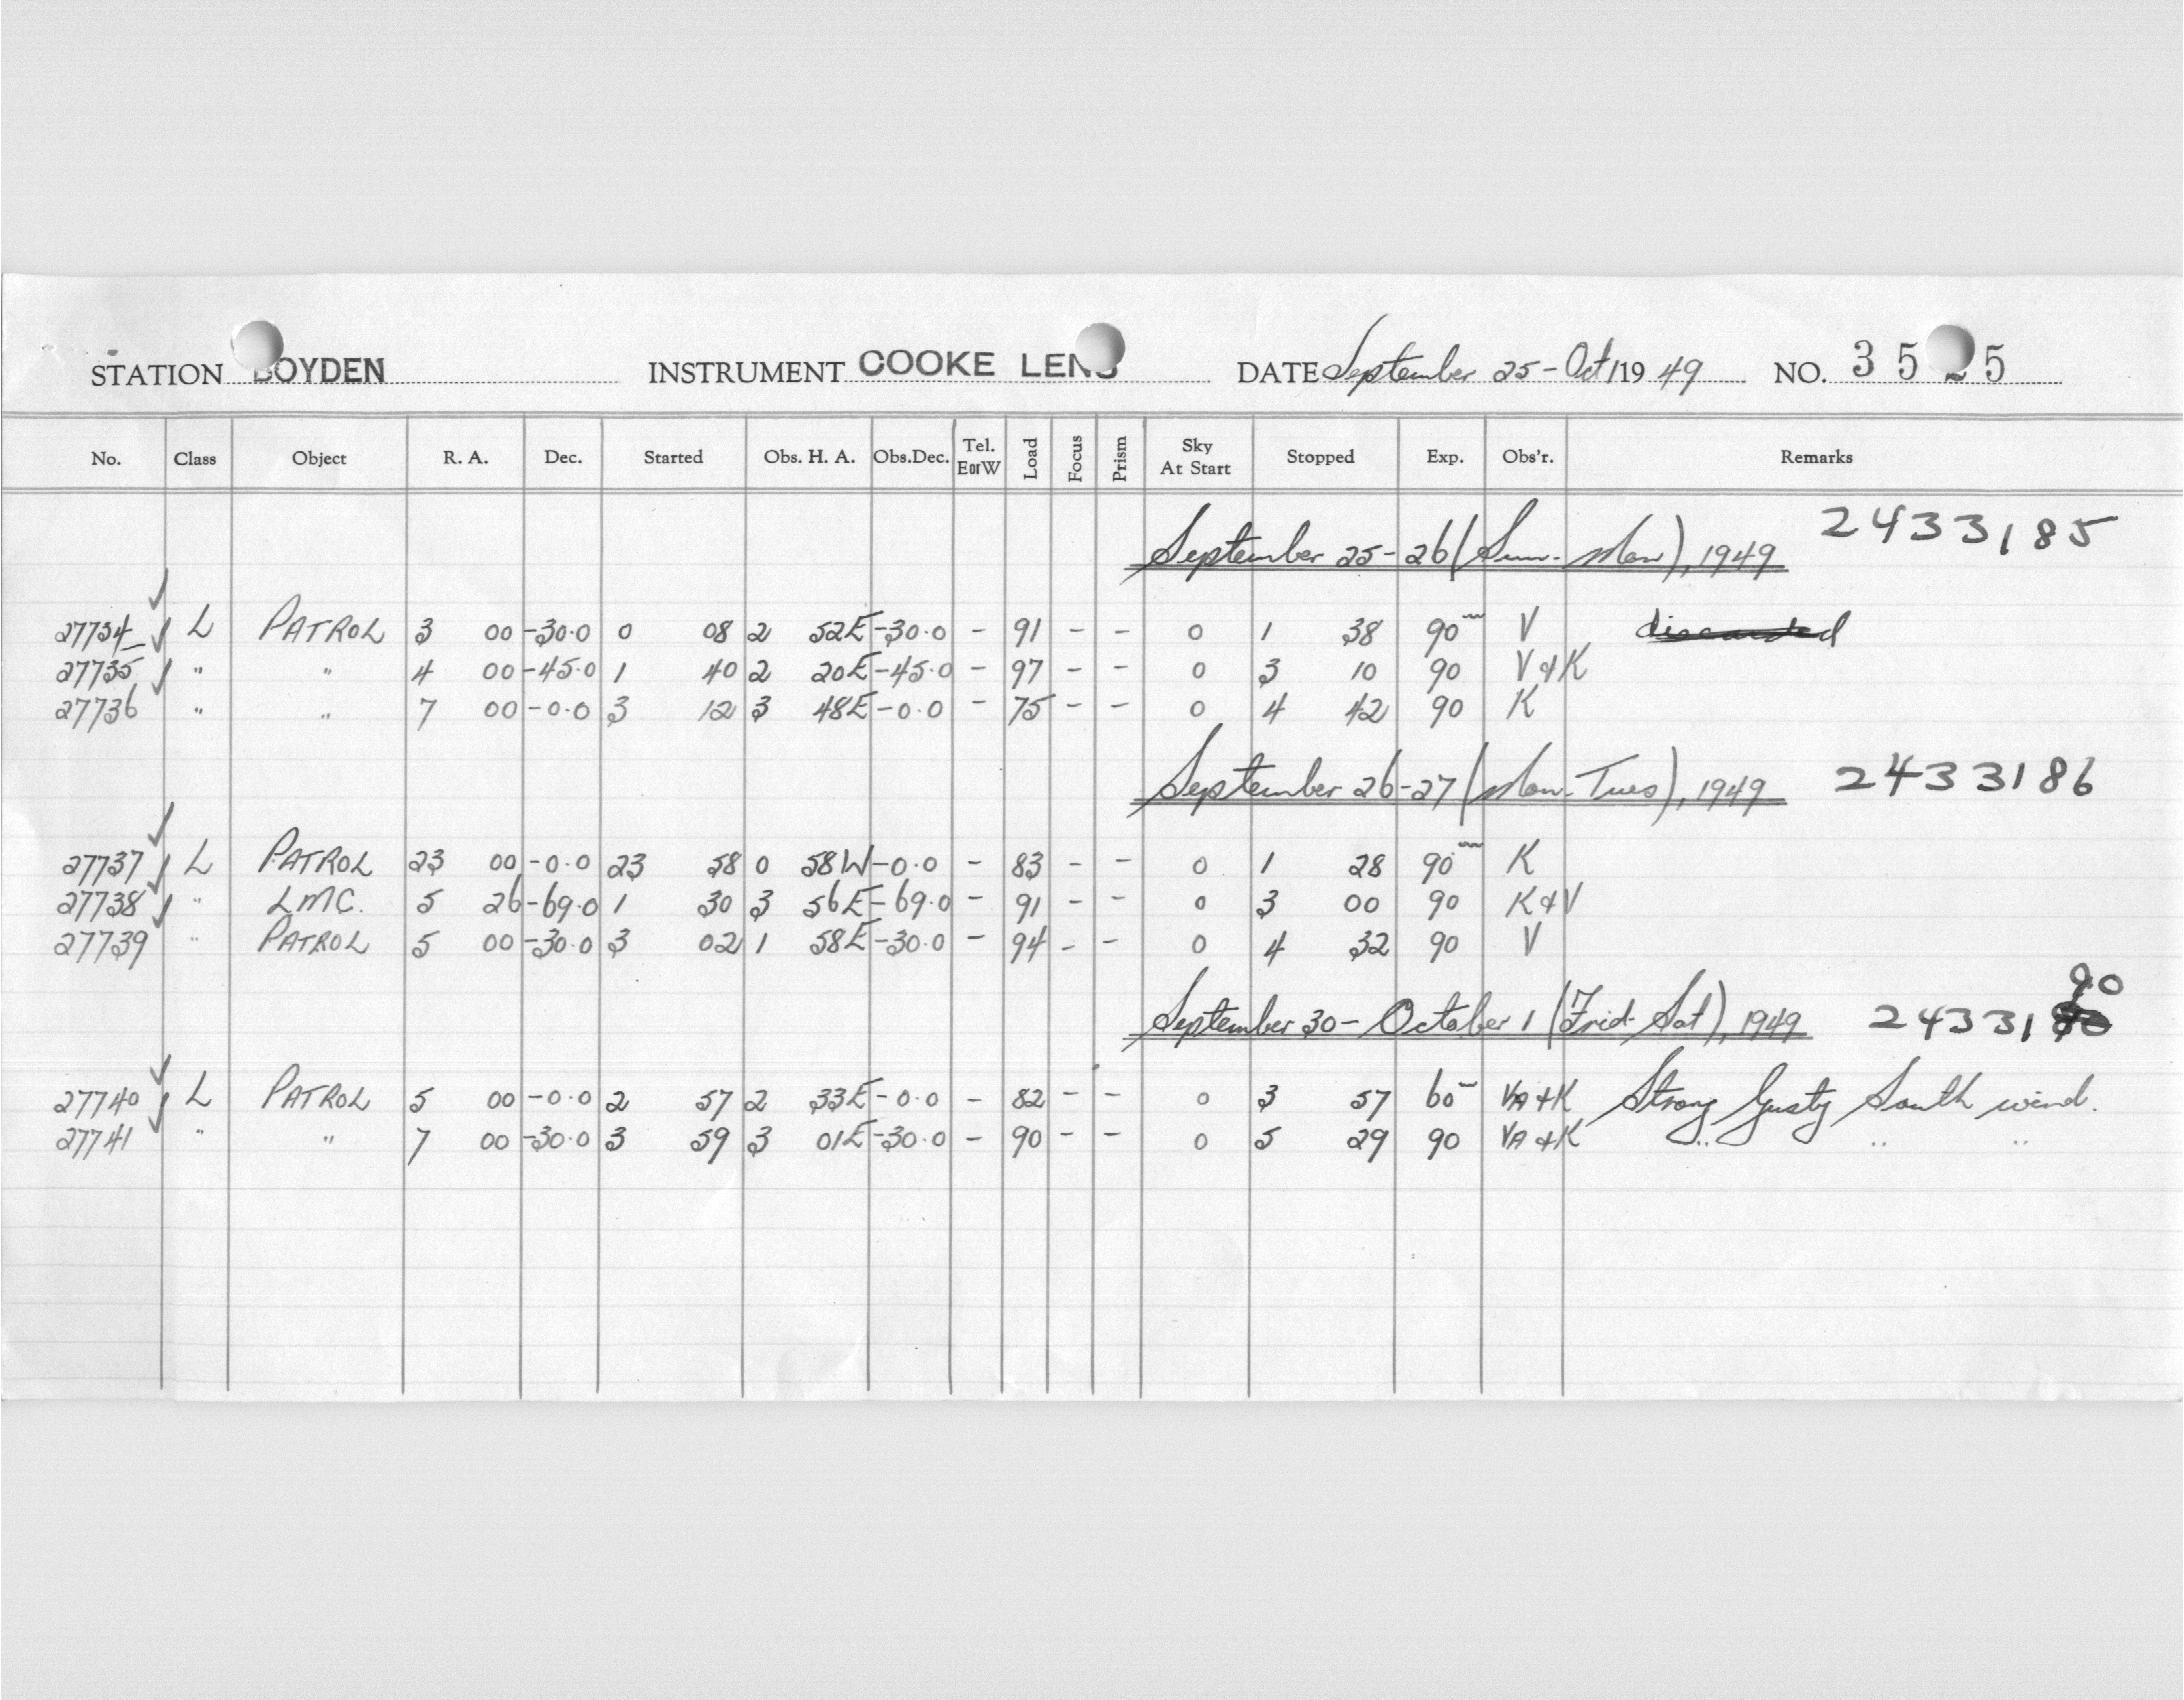 STATION BOYDEN INSTRUMENT COOKE LENS DATE September 25 - Oct 1 19 49 NO. 35 5
No. Class Object R. A. Dec. Started Obs. H. A. Obs.Dec. Tel. EorW Load Focus Prism Sky At Start Stopped Exp. Obs'r. Remarks
September 25-26 (Sun-Mon), 1949 2433185
27734 L PATROL 3 00 -30.0 0 08 2 52E -30.0 - 91 - - 0 1 38 90m V discarded
27735 " " 4 00 -45.0 1 40 2 20E -45.0 - 97 - - 0 3 10 90 V & K
27736 " " 7 00 -0.0 3 12 3 48E -0.0 - 75 - - 0 4 42 90 K
September 26-27 (Mon-Tues), 1949 2433186
27737 L PATROL 23 00 -0.0 23 58 0 58W -0.0 - 83 - - 0 1 28 90m K
27738 " LMC. 5 26 -69.0 1 30 3 56E -69.0 - 91 - - 0 3 00 90 K & V
27739 " PATROL 5 00 -30.0 3 02 1 58E -30.0 - 94 - - 0 4 32 90 V
90
September 30 - October 1 (Frid-Sat), 1949 24331
27740 L PATROL 5 00 -0.0 2 57 2 33E -0.0 - 82 - - 0 3 57 60m VA & K Strong Gusty South wind.
27741 " " 7 00 -30.0 3 59 3 01E -30.0 - 90 - - 0 5 29 90 VA & K " " "